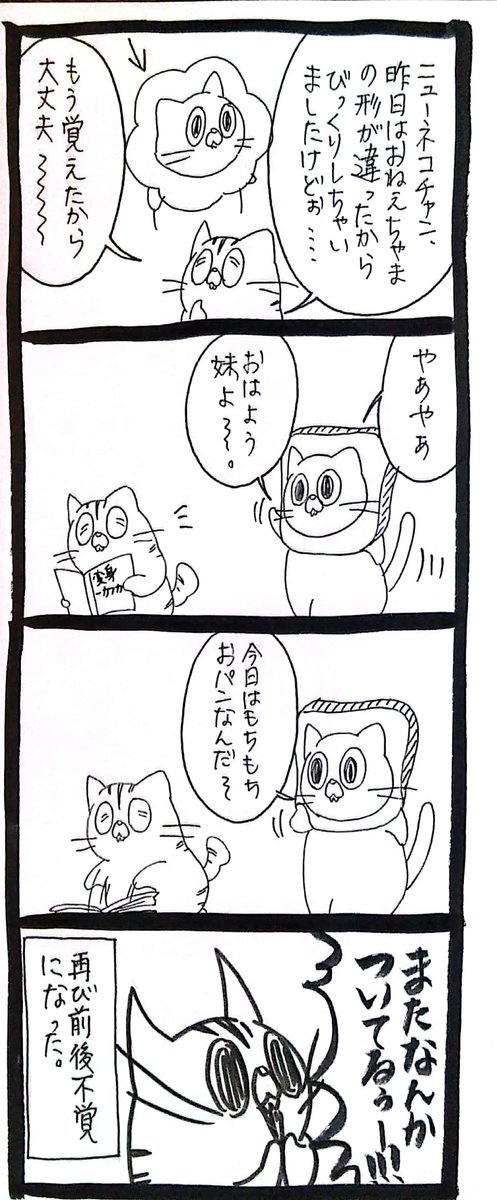 ニューネコチャン、
昨日はおねえちゃま
の形が違ったから
びっくりしちゃい
ましたけどぉ……
もう覚えたから
大丈夫〜〜〜〜
やあやあ
おはよう
妹よ〜。
変身
カフカ
今日はもちもち
おパンなんだ〜
またなんか
ついてるぅー!!!
再び前後不覚
になった。